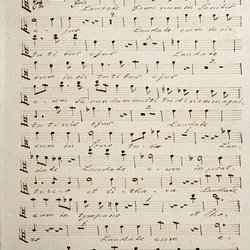 Laudate Dominum in Sanctis
ejus Laudate eum in vir
tutibus ejus Laudate
eum in vir tutibus ejus
e um secundum multitudinem magni
tu tinis ejus Laudate
eum in sono tu bo Lau
date Laudate e um in psal
terio et cithara Laudate
eum in tympano et Cho
ro Laudate eum